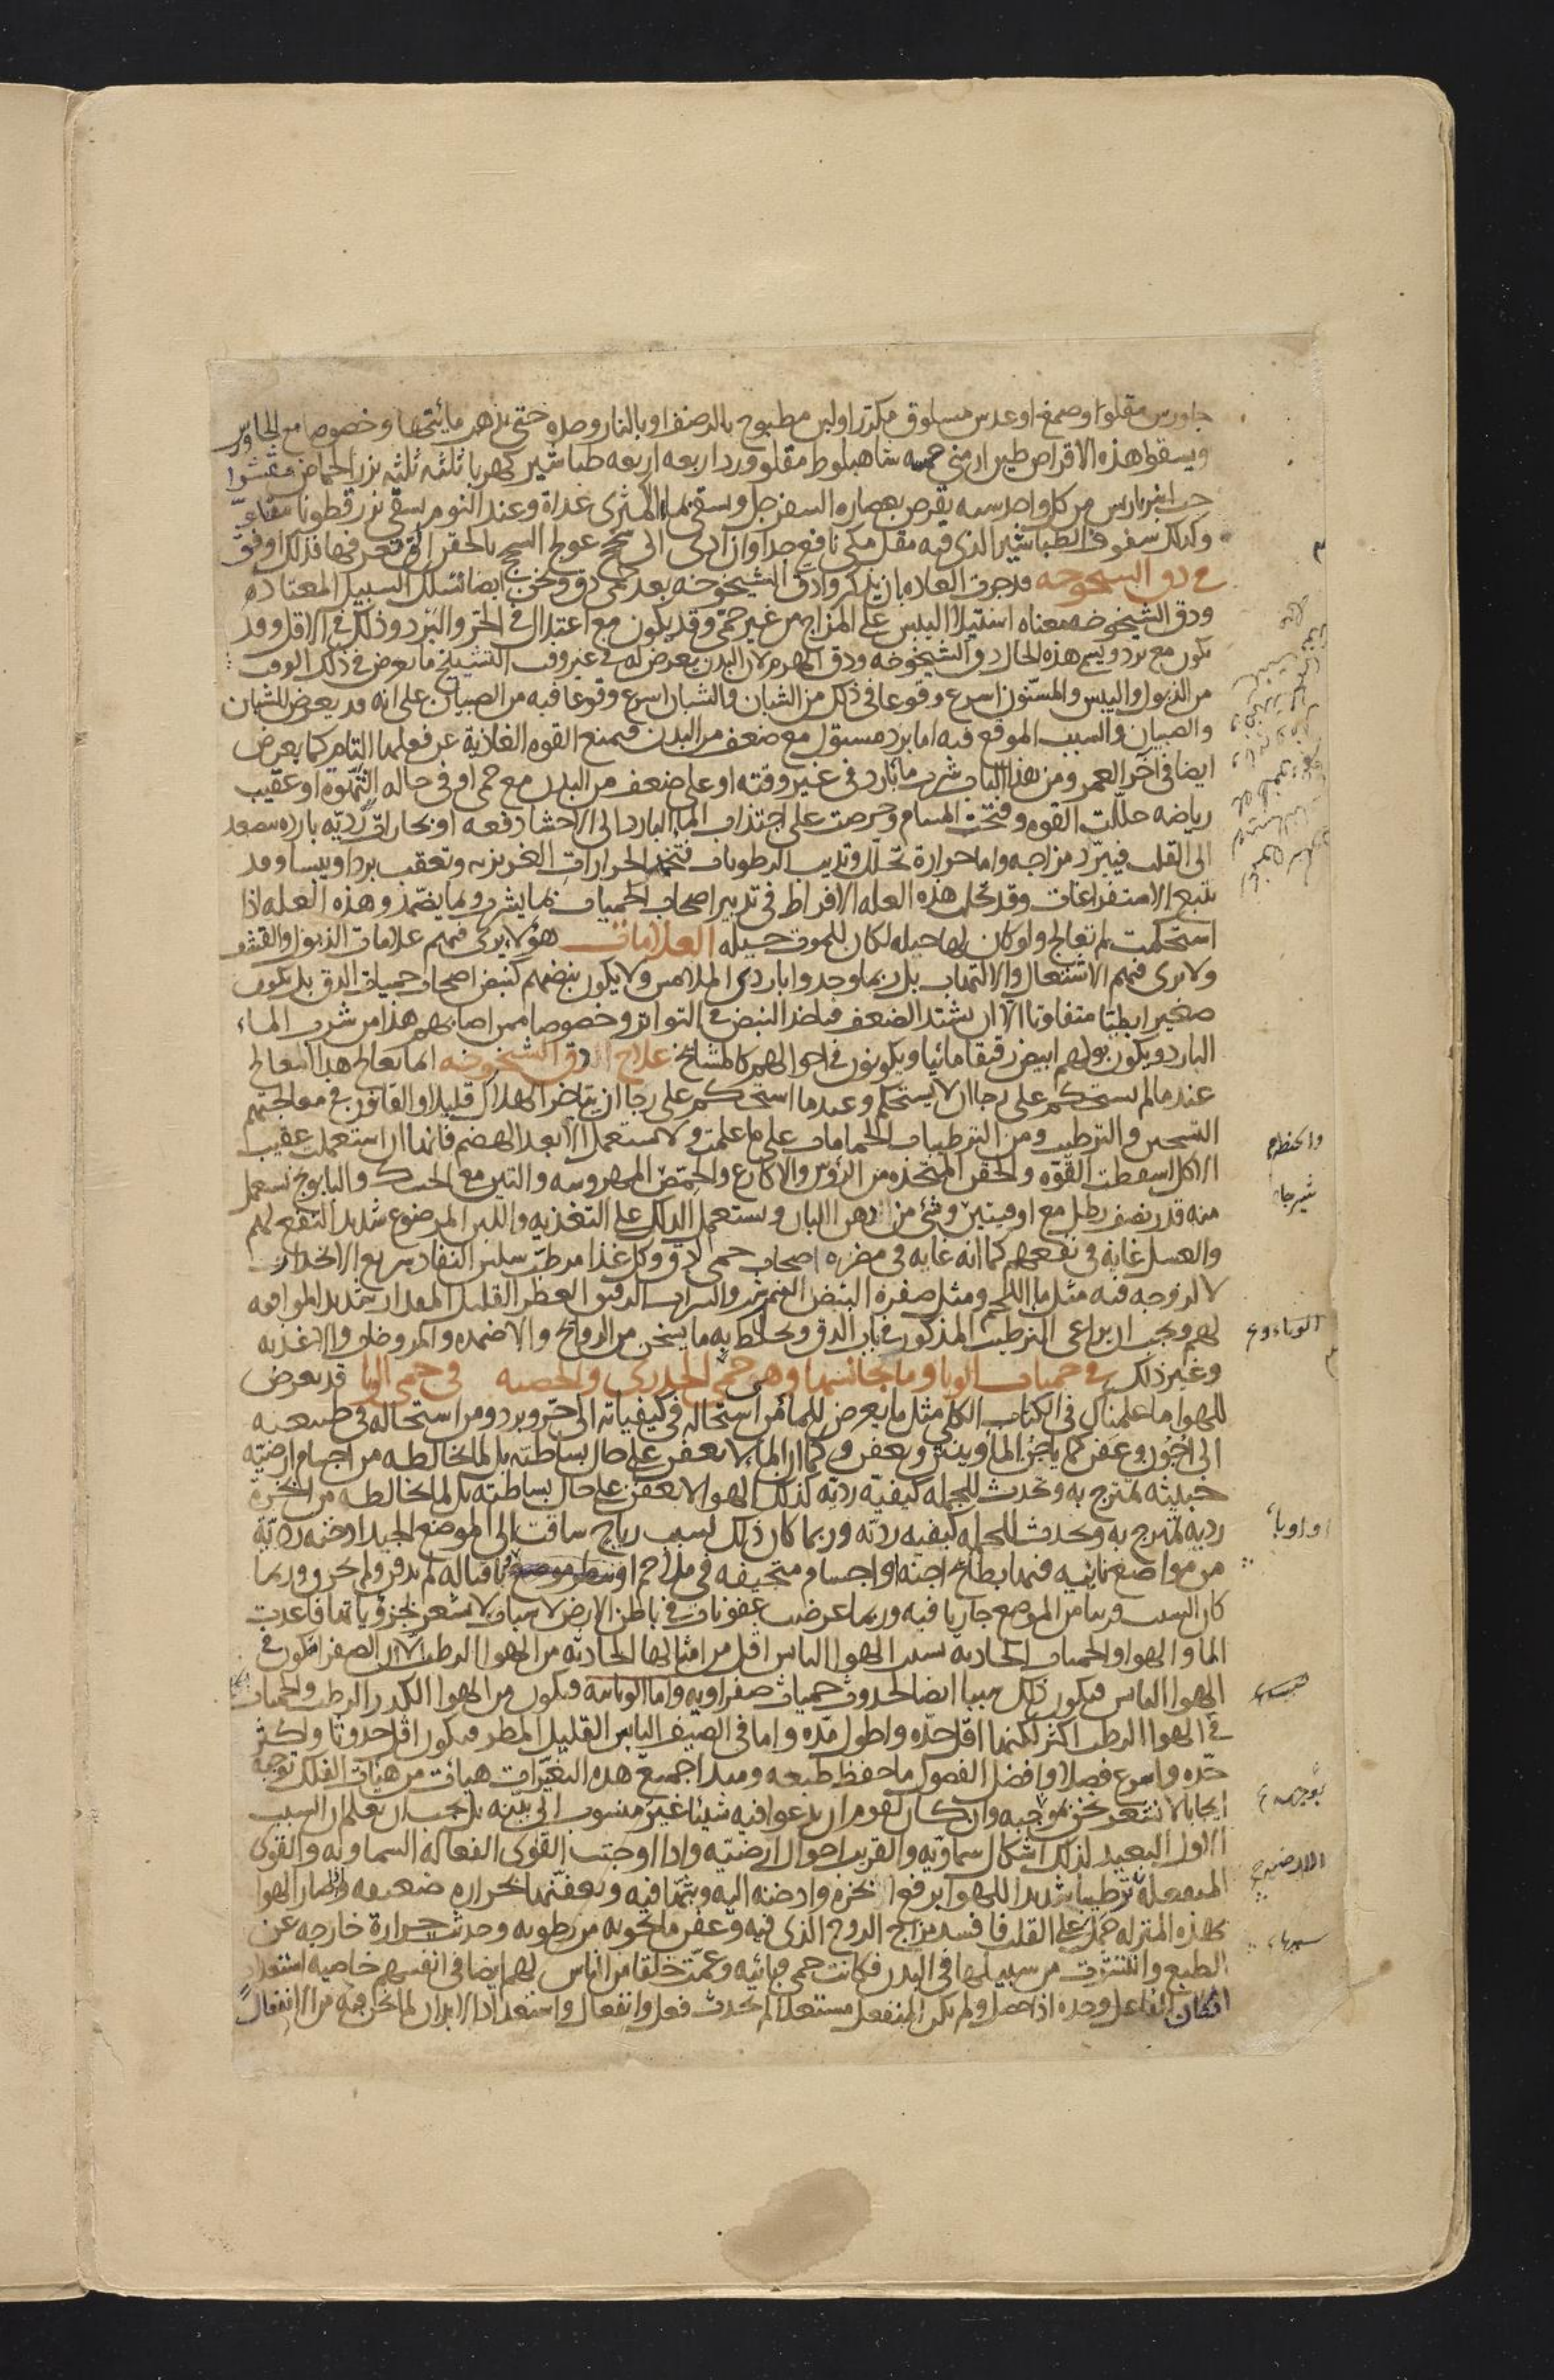 جاورس مقلوا وصمغ او عدس مسلوق مكررا او لبن مطبوخ بالرضف او بالنار وحده حتى تذهب مائيتها وخصوصا مع الجاورس
ويسقوا هذه الاقراص طين ارمني خمسة شاهبلوط مقلو ورد اربعه اربعه طباشير كهربا ثلثه ثلثه بزر الحماض مقشرا
حب انبرباريس من كل واحد سبعه يقرص بعصاره السفرجل ويسقى بماء الكمثرى غداة وعند النوم يسقى بزر قطونا
وكذلك سفوف الطباشير الذي فيه مقل مكي نافع جدا وان ادى الى سحج عولج السحج بالحقن التي تعرفها فذلك اوفق
في دق الشيخوخه قد جرت العاده بان يذكروا دق الشيخوخه بعد حمى دق ونحن ايضا نسلك السبيل المعتاده
ودق الشيخوخه معناه استيلا اليبس على المزاج من غير حمى وقد يكون مع اعتدال في الحر والبرد وذلك في الاقل وقد
يكون مع برد ويسم هذه الحال دق الشيخوخه ودق الهرم لان البدن يعرض له في غير وقت التشيخ ما يعرض في ذلك الوقت
من الذبول واليبس والمسنون اسرع وقوعا في ذلك من الشبان والشبان اسرع وقوعا فيه من الصبيان على انه قد يعرض للشبان
والصبيان والسبب الموقع فيه اما برد مستول مع ضعف من البدن فيمنع القوه الغاذية عن فعلها التام كما يعرض
ايضا في آخر العمر ومن هذا الباب شرب ما بارد في غير وقته او على ضعف من البدن مع حمى او في حاله النهوة او عقيب
رياضه حللت القوه وفتحت المسام وحرصت على اجتذاب الما البارد الى الاحشا دفعه او بخارات رديه بارده تصعد
الى القلب فيبرد مزاجه واما حرارة تحلل وتذيب الرطوبات فتخمد الحرارات الغريزيه وتعقب بردا ويبسا وقد
تتبع الاستفراغات وقد تجلب هذه العله الافراط في تدبير اصحاب الحميات بما يشرب وبما يضمد وهذه العله اذا
استحكمت لم تعالج ولو كان لها حيله لكان للموت حيله العلامات هؤلا يرى فيهم علامات الذبول والقشف
ولا يرى فيهم الاشتعال والالتهاب بل ربما وجدوا باردي الملامس ولا يكون نبضهم كنبض اصحاب حميات الدق بل يكون
صغيرا بطيا متفاوتا الا ان يشتد الضعف فياخذ النبض في التواتر وخصوصا ممن اصابهم هذا من شرب الماء
البارد ويكون بولهم ابيض رقيقا مائيا ويكونون في احوالهم كالمشايخ علاج الدق الشيخوخه انما يعالج هذا المعالج
عند ما لم يستحكم على رجا ان لا يستحكم وعند ما استحكم على رجا ان يتاخر الهلاك قليلا والقانون في معالجتهم
التسخين والترطيب ومن الترطيبات الحمامات على ما علمت ولا يستعمل الا بعد الهضم فانها ان استعملت عقيب
الاكل اسقطت القوه والحقن المتخذه من الرؤس والاكارع والحمص المهروسه والتين مع الحسك والبابونج تستعمل
منه قدر نصف رطل مع اوقيتين وشئ من دهن البان ويستعمل الدلك على التغذيه واللبن المرضوع شديد النفع لهم
والعسل غايه في نفعهم كما انه غايه في مضرة اصحاب حمى الدق وكل غذا مرطب سلس النفاد سريع الانحدار
لا لزوجه فيه مثل ما اللحم ومثل صفرة البيض النيمبرشت والشراب الرقيق العطر القليل المقدار شديد الموافقه
لهم ويجب ان يراعى الترطيب المذكور في باب الدق ويخلط به ما يسخن من الروائح والاضمده والمروخات والاغذيه
وغير ذلك في حميات الوبا وما يجانسها وهي حمى الجدري والحصبه في حمى الوبا قد يعرض
للهوا ما علمناك في الكتاب الكلي مثل ما يعرض للما من استحاله في كيفياته الى حر وبرد ومن استحاله في طبيعته
الى اجون وعفن كما ياجن الما وينتن ويعفن وكما ان الما لا يعفن على حال بساطته بل لما يخالطه من اجسام ارضيه
خبيثه تمتزج به وتحدث للجمله كيفيه رديه كذلك الهوا لا يعفن على حال بساطته بل لما يخالطه من ابخرة
رديه تمتزج به وتحدث للجمله كيفيه رديه وربما كان ذلك لسبب رياح ساقت الى الموضع الجيد ادخنه رديه
من مواضع نائيه فيها بطائح اجنه او اجسام متجيفه في ملاحم او وبا قباله لم تدفن ولم تحرق وربما
كان السبب قريبا من الموضع جاريا فيه وربما عرضت عفونات في باطن الارض لاسباب لا نشعر بجزؤياتها فاعدت
الما والهوا والحميات الحادثه بسبب الهوا اليابس اقل من امثالها الحادثه من الهوا الرطب لان الصفرا تكون في
الهوا اليابس فيكون ذلك سببا ايضا لحدوث حميات صفراويه واما الوبائيه فيكون من الهوا الكدر الرطب والحميات
في الهوا الرطب اكثر لكنها اقل حده واطول مده واما في الصيف اليابس القليل المطر فيكون اقل حدوثا واكثر
حده واسرع فصلا وافضل الفصول ما حفظ طبعه ومبدا جميع هذه التغيرات هيات من هيات الفلك توجبه
ايجابا لا نشعر نحن بموجبه وان كان لقوم ان يدعوا فيه شيئا غير منسوب الى بينه بل يجب ان تعلم ان السبب
الاول البعيد لذلك اشكال سماويه والقريب احوال ارضيه واذا اوجبت القوى الفعاله السماويه والقوى
المنفعله ترطيبا شديدا للهوا برفع ابخرة وادخنه اليه وبثها فيه وتعفنها بحرارة ضعيفه واذا صار الهوا
بهذه المنزله حمل على القلب فافسد مزاج الروح الذي فيه وعفن ما يحويه من رطوبه وحدثت حرارة خارجه عن
الطبع وانتشرت من سبيلها في البدن فكانت حمى وبائيه وعمت خلقا من الناس لهم ايضا في انفسهم خاصيه استعداد
اذ كان الفاعل وحده اذا حصل ولم يكن المنفعل مستعدا لم يحدث فعل وانفعال واستعداد الابدان لما نحن فيه من الانفعال